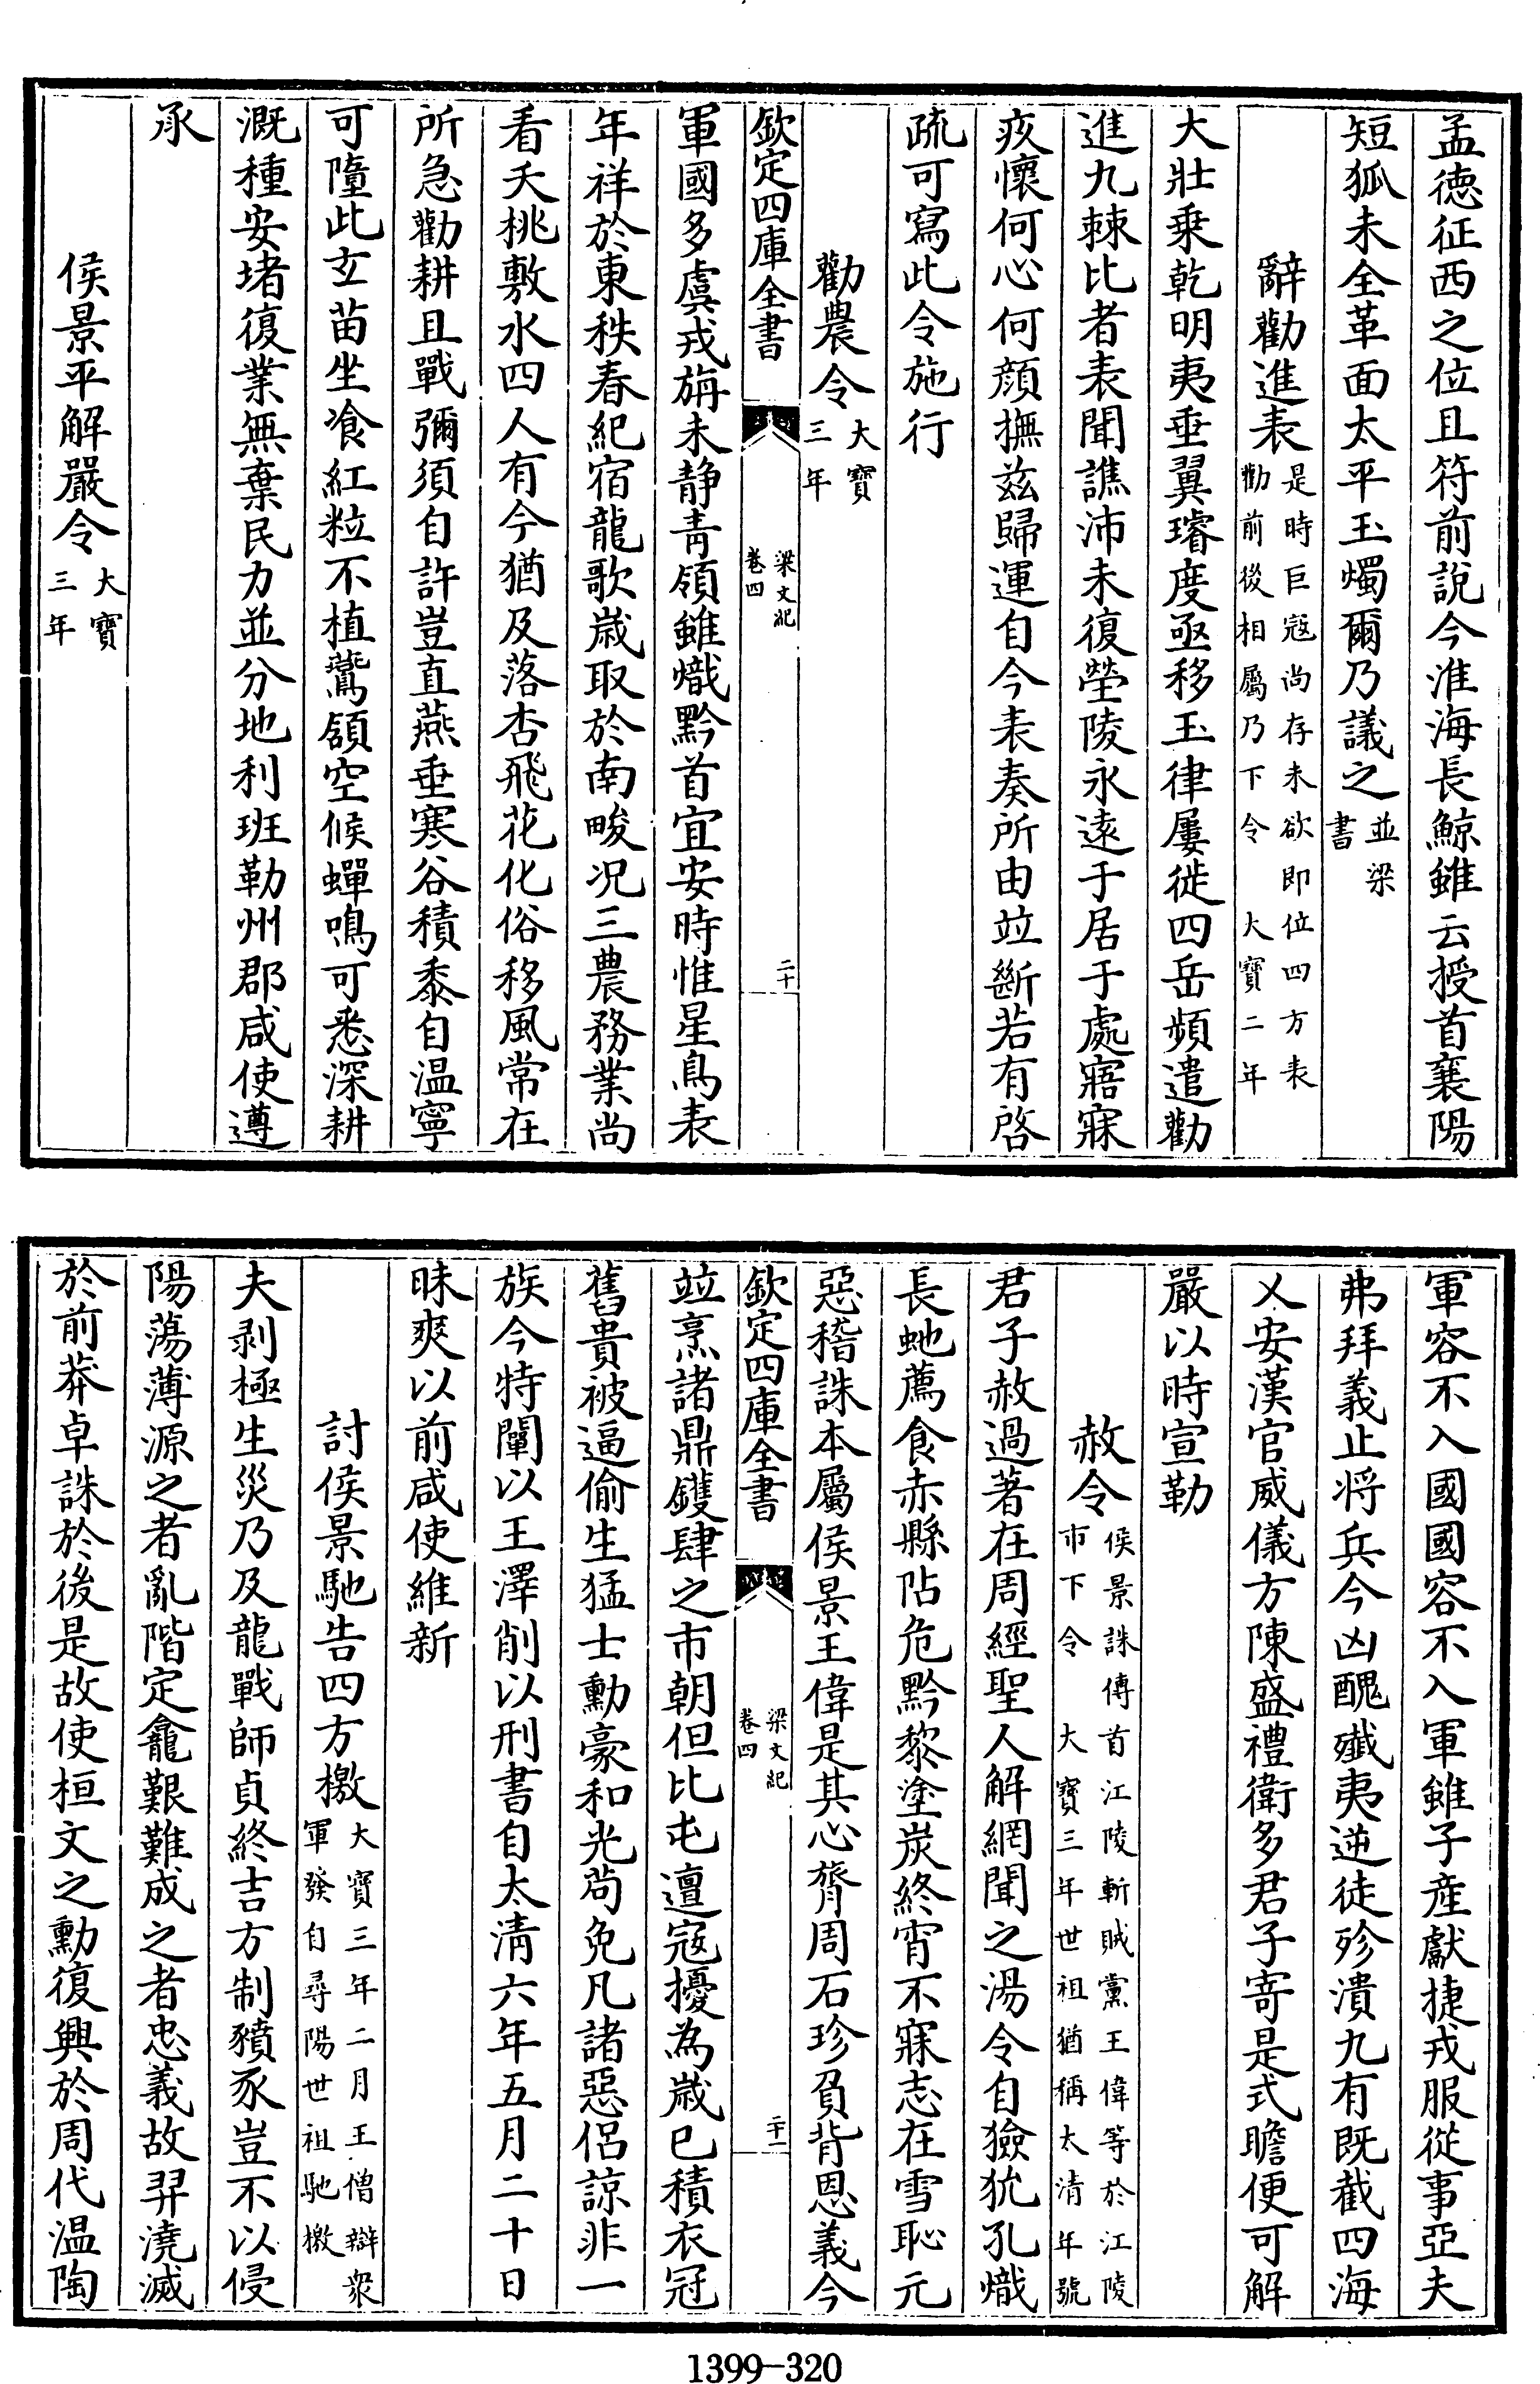 孟德征西之位且符前說今淮海長鯨雖云授首襄陽
短狐未全革面太平玉燭爾乃議之並梁書
辭勸進表是時巨寇尚存未欲即位四方表勸前後相屬乃下令 大寶二年
大壯乗乾明夷垂翼璿度亟移玉律屢徙四岳頻遣勸
進九棘比者表聞譙沛未復塋陵永逺于居于處寤寐
疚懷何心何顔撫兹歸運自今表奏所由竝斷若有啓
疏可寫此令施行
勸農令大寶三年
欽定四庫全書
梁文紀
卷四
二十
軍國多虞戎旃未静青領雖熾黔首宜安時惟星鳥表
年祥於東秩春紀宿龍歌嵗取於南畯况三農務業尚
看夭桃敷水四人有令猶及落杏飛花化俗移風常在
所急勸耕且戰彌須自許豈直燕垂寒谷積黍自温寧
可隨此玄苗坐飡紅粒不植鷰頷空候蟬鳴可悉深耕
溉種安堵復業無棄民力並分地利班勒州郡咸使遵
承
侯景平解嚴令大寶三年
軍容不入國國容不入軍雖子産獻捷戎服從事亞夫
弗拜義止将兵今凶醜殱夷逆徒殄潰九有既截四海
乂安漢官威儀方陳盛禮衛多君子寄是式瞻便可解
嚴以時宣勒
赦令侯景誅傳首江陵斬賊黨王偉等於江陵市下令 大寶三年世祖猶稱太清年號
君子赦過著在周經聖人解網聞之湯令自獫狁孔熾
長虵薦食赤縣阽危黔黎塗炭終宵不寐志在雪恥元
惡稽誅本屬侯景王偉是其心膂周石珍負背恩義今
欽定四庫全書
梁文紀
卷四
二十一
竝烹諸鼎鑊肆之市朝但比屯邅寇擾為嵗已積衣冠
舊貴被逼偷生猛士勳豪和光茍免凡諸惡侣諒非一
族今特闡以王澤削以刑書自太清六年五月二十日
昧爽以前咸使維新
討侯景馳告四方檄大寶三年二月王僧辯衆軍發自尋陽世祖馳檄
夫剥極生災乃及龍戰師貞終吉方制豶豕豈不以侵
陽蕩薄源之者亂階定龕艱難成之者忠義故羿澆滅
於前莽卓誅於後是故使桓文之勳復興於周代温陶
1399-320